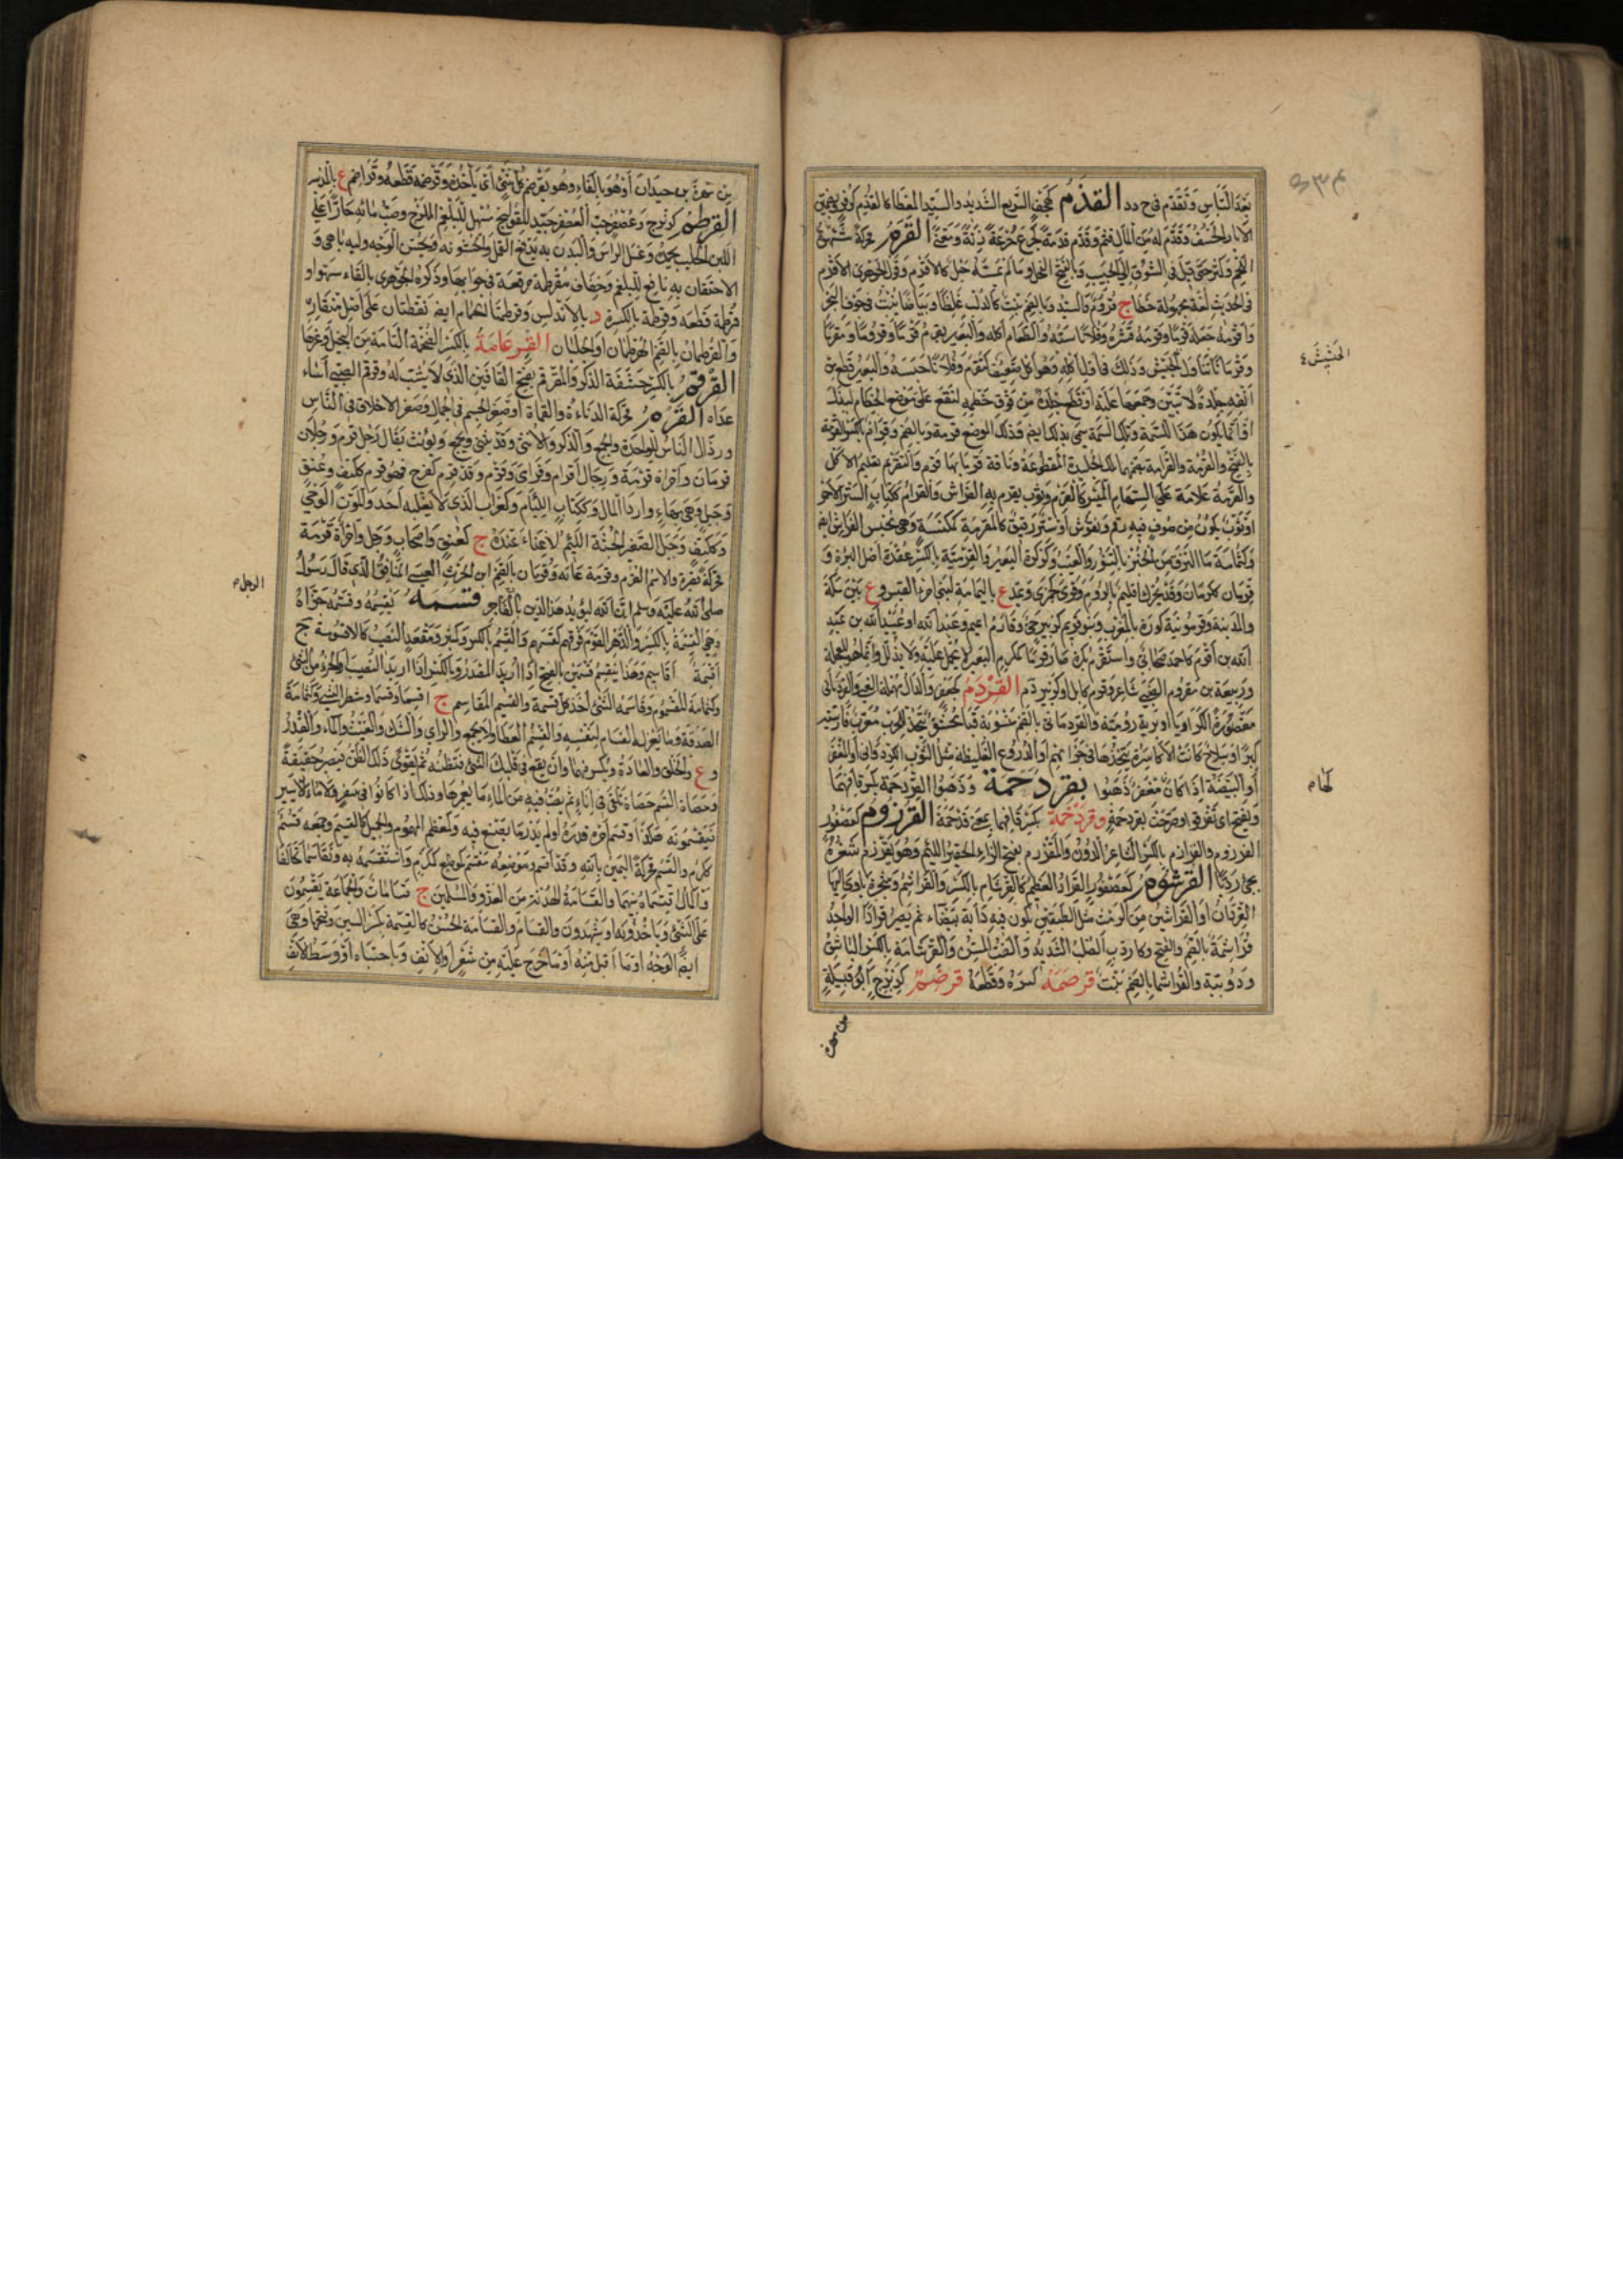 بعد الناس وتقدم في ح د د القذم كهجف السريع الشديد والسيد المعطاء كالقذم كزفر وبضمتين
الآبار الخسف وقذم له من المال قثم وقذم قذمة كجرع جرعة زنة ومعنى القرم محركة شهوة
اللحم وكثر حتى قيل في الشوق إلى الحبيب وبالفتح الفحل وما لم يمسه حبل كالأقرم وقول الجوهري الأقرم
في الحديث لغة مجهولة خطأ ج قروم والسيد وبالضم نبت كالدلب غلظا وبياضا ينبت في جوف البحر
وأقرمه جعله قرما وقرمه قشره وفلانا سبه والطعام أكله والبعير يقرم قرما وقروما ومقرما
وقرمانا تناول الحشيش وذلك في أول أكله وهو أكل ضعيف كتقرم وفلانا حبسه والبعير قطع من
أنفه جلدة لا تبين وجمعها عليه أو قطع جلدة من فوق خطمه لتقع على موضع الخطام ليذل
أو إنما يكون هذا للسمة وتلك السمة سمي بذلك أيضا وذلك الموضع قرمة وبالضم وقرام بالكسر والقرمة
بالفتح والقرمة والقرامة بضمهما تلك الجليدة المقطوعة وناقة قرماء بها قرم والتقريم تعليم الأكل
والقرمة علامة على السهام الميسر كالقرم وثوب يقرم به الفراش والقرام ككتاب الستر الأحمر
أو ثوب ملون من صوف فيه رقم ونقوش أو ستر رقيق كالمقرمة كمكنسة وهي محبس الفراش أيضا
وكثمامة ما التزق من الخبز بالتنور والعيب وكركرة البعير والقرمية بالكسر عقدة أصل البرة و
قرمان كرمان وقد يحرك إقليم بالروم وقرمى كجمزى وتمد ع باليمامة لبني امرئ القيس و ع بين مكة
والمدينة وقرمونية كورة بالمغرب وبنو قريم كزبير حي وقارم اسم وعبد الله أو عبيد الله بن
عبد الله بن أقرم كأحمد صحابي واستقرم بكر صار قرما كمكرم البعير لا يحمل عليه ولا يذلل وإنما هو للفحلة
وربيعة بن مقروم الضبي شاعر وقرم كابل أو كزبير قدم القردم كجعفر والدال مهملة العيي والقردمانى
مقصورة الكراويا أو برية رومية والقردماني بالضم منسوبة قباء محشو يتخذ للحرب معرب فارسيته
كبر أو سلاح كانت الأكاسرة يتخذها في خزائنهم أو الدروع الغليظة مثل الثوب الكردواني أو المغفر
أو البيضة إذا كان مغفر ذهبوا بقردحمة وذهبوا القردحمة بكسر قافهما
وبفتح أي تفرقوا وصرحت بقردحمة وقردحمة بكسر قافهما بمعنى قذحمة القرزوم كعصفور
الفرزوم والقرازم بالكسر الشاعر الدون والمقرزم بفتح الزاي الحقير اللئيم وهو يقرزم شعره
يجيء رديئا القرشوم كعصفور القراد العظيم كالقرشام بالكسر والقراشم وشجرة يأوي إليها
القردان أو القراشين من الرمث مثل الطبقتين تكون فيه دابة بيضاء ثم يصير قرادا الواحد
قراشمة بالضم والفتح وكإردب الصلب الشديد والضب المسن والقرشامة بالكسر الباشق
ودويبة والقراشما بالضم نبت قرصمه كسره وقطعه قرضم كزبرج أبو قبيلة
الحشيش ٤
كلحام
بن مهرة
بن مهرة بن حيدان أو هو بالفاء وهو يقرضم كل شيء أي يأخذه وقرضمه قطعه وقراضم ع بالمدينة
القرطم كزبرج وعصفر حب العصفر جيد للقولنج مسهل للبلغم اللزج وصب مائه حارا على
اللبن الحليب يجمده وغسل الرأس والبدن به ينفع القمل والخشونة ويحسن الوجه ولبه باهي و
الاحتقان به نافع للبلغم وخفاف مقرطمة مرقعة في جوانبها وذكره الجوهري بالفاء سهوا و
قرطمه قطعه وقرطمة بالكسر د بالأندلس وقرطمتا الحمام أيضا نقطتان على أصل منقاره
والقرطمان بالضم الهرطمان أو الجلبان القرعامة بالكسر الضخمة التامة من النخيل وغيرها
القرقم بالكسر حشفة الذكر والمقرقم بفتح القافين الذي لا يشب له وقرقم الصبي أساء
غذاءه القزم محركة الدناءة والقماة أو صغر الجسم في الجمال وصغر الأخلاق في الناس
ورذال الناس للواحدة والجمع والذكر والأنثى وقد يثنى ويجمع ويؤنث يقال رجل قزم ورجلان
قزمان وامرأة قزمة ورجال أقزام وقزامى وقزم وقد قزم كفرح فهو قزم ككتف وعنق
وجبل وهي بهاء وأردأ المال وككتاب اللئام وكغراب الذي لا يغلبه أحد والموت الوحي
وككتف وجبل الصغير الجثة اللئيم لا غناء عنده ج كعنق وأصحاب ورجل وامرأة قزمة
محركة قصيرة والاسم القزم وقزمه عابه وقزمان بالضم ابن الحرث العبسي المنافق الذي قال رسول
صلى الله عليه وسلم إن الله ليؤيد هذا الدين بالفاجر قسمه يقسمه وقسمه جزأه
وهي القسمة بالكسر والدهر القوم فرقهم كقسمهم والقسم بالكسر وكمنبر ومقعد النصيب كالأقسومة ج
أقسمة أقاسيم وهذا ينقسم قسمين بالفتح إذا أريد المصدر وبالكسر إذا أريد النصيب أو الجزء من الشيء
وكثمامة المقسوم وقاسمه الشيء أخذ كل قسمة والقسيم المقاسم ج أقسماء وقسماء وشطر الشيء وكثمامة
الصدقة وما يعزله القسام لنفسه والقسم العطاء ولا يجمع والرأي والشك والغيث والماء والقدر
و ع والخلق والعادة ويكسر فيهما وأن يقع في قلبك الشيء فتظنه ثم يقوى ذلك الظن فيصير حقيقة
وحصاة القسم حصاة تلقى في إناء ثم يصب فيه من الماء ما يغمرها وذلك إذا كانوا في سفر ولا ماء إلا يسير
فيقسمونه هكذا وقسم أمره قدره أو لم يدر ما يصنع فيه وكمعظم المهموم والجميل كالقسيم وجمعه قسم
كرم والقسم محركة اليمين بالله وقد أقسم وموضعه مقسم كموضع كمكرم واستقسمه به وتقاسما تحالفا
والمال اقتسماه بينهما والقسامة الهدنة بين العدو والمسلمين ج قسامات والجماعة يقسمون
على الشيء ويأخذونه أو يشهدون والقسام والقسامة الحسن كالقسمة بكسر السين وفتحها وهي
أيضا الوجه أو ما أقبل منه أو ما خرج عليه من شعر أو الأنف وناحيتاه أو وسط الأنف
الرجل م